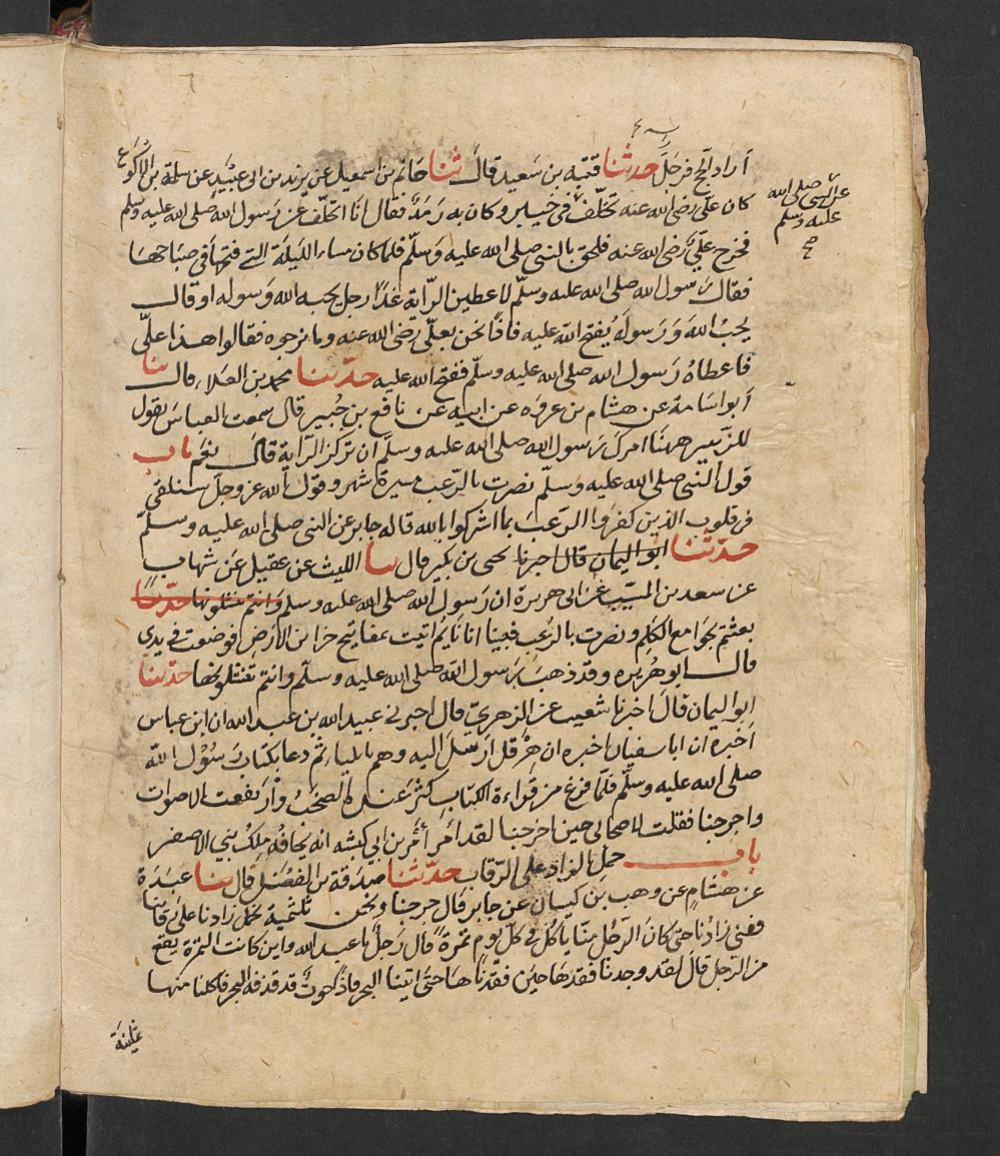 أراد الحج فرجل حدثنا قتيبة بن سعيد قال ثنا حاتم بن اسمعيل عن يزيد بن ابى عبيد عن سلمة بن الاكوع
كان على رضى الله عنه تخلف فى خيبر وكان به رمد فقال انا اتخلف عن رسول الله صلى الله عليه وسلم
عن النبى صلى الله
عليه وسلم
صح
فخرج على رضى الله عنه فلحق بالنبى صلى الله عليه وسلم فلما كان مساء الليلة التى فتحها فى صباحها
فقال رسول الله صلى الله عليه وسلم لاعطين الراية غدا رجل يحبه الله ورسوله او قال
يحب الله ورسوله يفتح الله عليه فاذا نحن بعلى رضى الله عنه وما نرجوه فقالوا هذا على
فاعطاه رسول الله صلى الله عليه وسلم ففتح الله عليه حدثنا محمد بن العلاء قال ثنا
أبو اسامة عن هشام بن عروه عن ابيه عن نافع بن جبير قال سمعت العباس يقول
للزبير ههنا امرك رسول الله صلى الله عليه وسلم ان تركز الراية قال نعم باب
قول النبى صلى الله عليه وسلم نصرت بالرعب مسيرة شهر وقول الله عز وجل سنلقى
فى قلوب الذين كفروا الرعب بما اشركوا بالله قاله جابر عن النبى صلى الله عليه وسلم
حدثنا ابو اليمان قال اخبرنا يحيى بن بكير قال ثنا الليث عن عقيل عن شهاب
عن سعد بن المسيب عن ابى هريرة ان رسول الله صلى الله عليه وسلم وانتم تنتثلونها حدثنا
بعثتم بجوامع الكلم ونصرت بالرعب فبينا انا نايم اتيت بمفاتيح خزاين الارض فوضعت فى يدى
قال ابو هريره وقد ذهب رسول الله صلى الله عليه وسلم وانتم تنتثلونها حدثنا
ابو اليمان قال اخبرنا شعيب عن الزهرى قال اخبرنى عبيد الله بن عبد الله ان ابن عباس
اخبره ان ابا سفيان اخبره ان هرقل ارسل اليه وهم بايليا ثم دعا بكتاب رسول الله
صلى الله عليه وسلم فلما فرغ من قراءة الكتاب كثر عنده الصخب وارتفعت الاصوات
واخرجنا فقلت لاصحابى حين اخرجنا لقد امر أمر بن ابى كبشه انه يخافه ملك بنى الاصفر
باب حمل الزاد على الرقاب حدثنا صدقة بن الفضل قال ثنا عبدة
عن هشام عن وهب بن كيسان عن جابر قال خرجنا ونحن ثلثمية نحمل زادنا على رقابنا
ففنى زادنا حتى كان الرجل منا ياكل فى كل يوم تمرة قال رجل يا عبد الله واين كانت التمرة يقع
من الرجل قال لقد وجدنا فقدها حين فقدناها حتى اتينا البحر فاذا حوت قد قذفه البحر فاكلنا منها